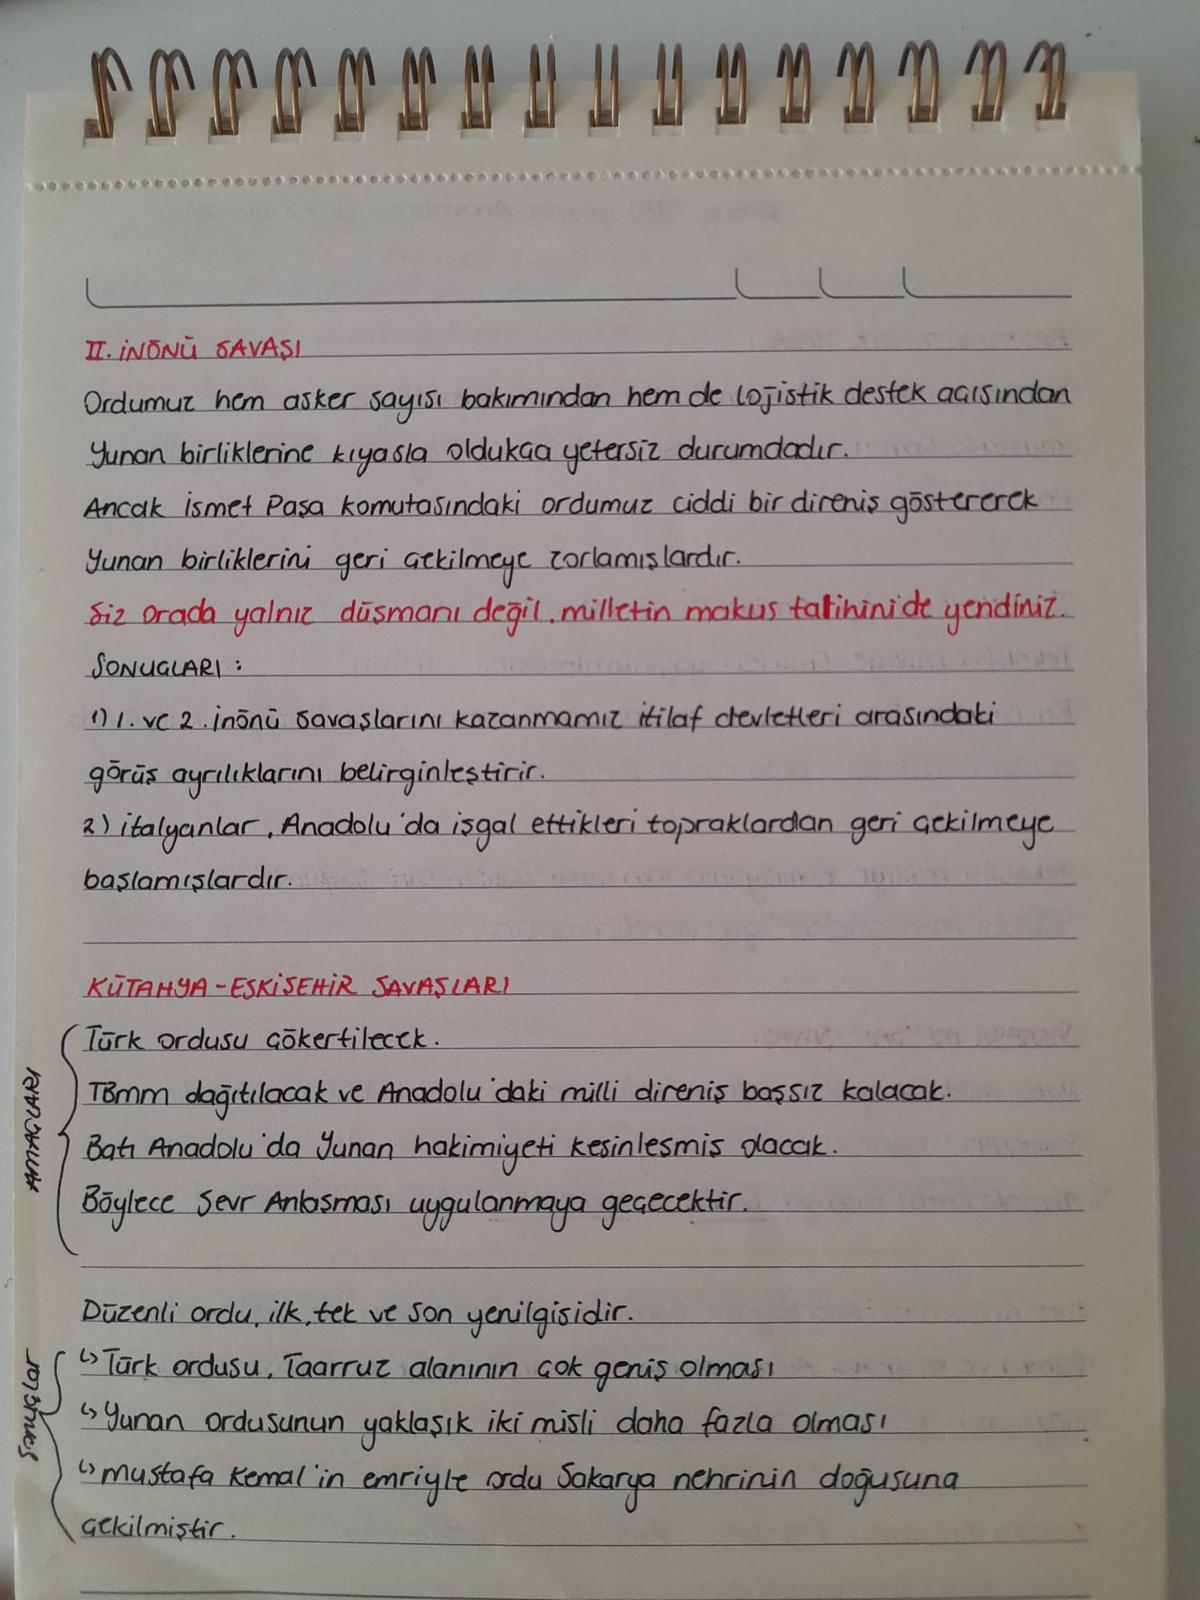 II. İNÖNÜ SAVAŞI
Ordumuz hem asker sayısı bakımından hem de lojistik destek açısından
Yunan birliklerine kıyasla oldukça yetersiz durumdadır.
Ancak İsmet Paşa komutasındaki ordumuz ciddi bir direniş göstererek
Yunan birliklerini geri çekilmeye zorlamışlardır.
Siz orada yalnız düşmanı değil, milletin makus talihini de yendiniz.
SONUÇLARI :
1) 1. ve 2. İnönü savaşlarını kazanmamız itilaf devletleri arasındaki
görüş ayrılıklarını belirginleştirir.
2) İtalyanlar, Anadolu'da işgal ettikleri topraklardan geri çekilmeye
başlamışlardır.
KÜTAHYA - ESKİŞEHİR SAVAŞLARI
Türk ordusu çökertilecek.
TBMM dağıtılacak ve Anadolu'daki milli direniş başsız kalacak.
Batı Anadolu'da Yunan hakimiyeti kesinleşmiş olacak.
Böylece Sevr Anlaşması uygulanmaya geçecektir.
Düzenli ordu, ilk, tek ve son yenilgisidir.
↳ Türk ordusu, Taarruz alanının çok geniş olması
↳ Yunan ordusunun yaklaşık iki misli daha fazla olması
↳ Mustafa Kemal'in emriyle ordu Sakarya nehrinin doğusuna
çekilmiştir.